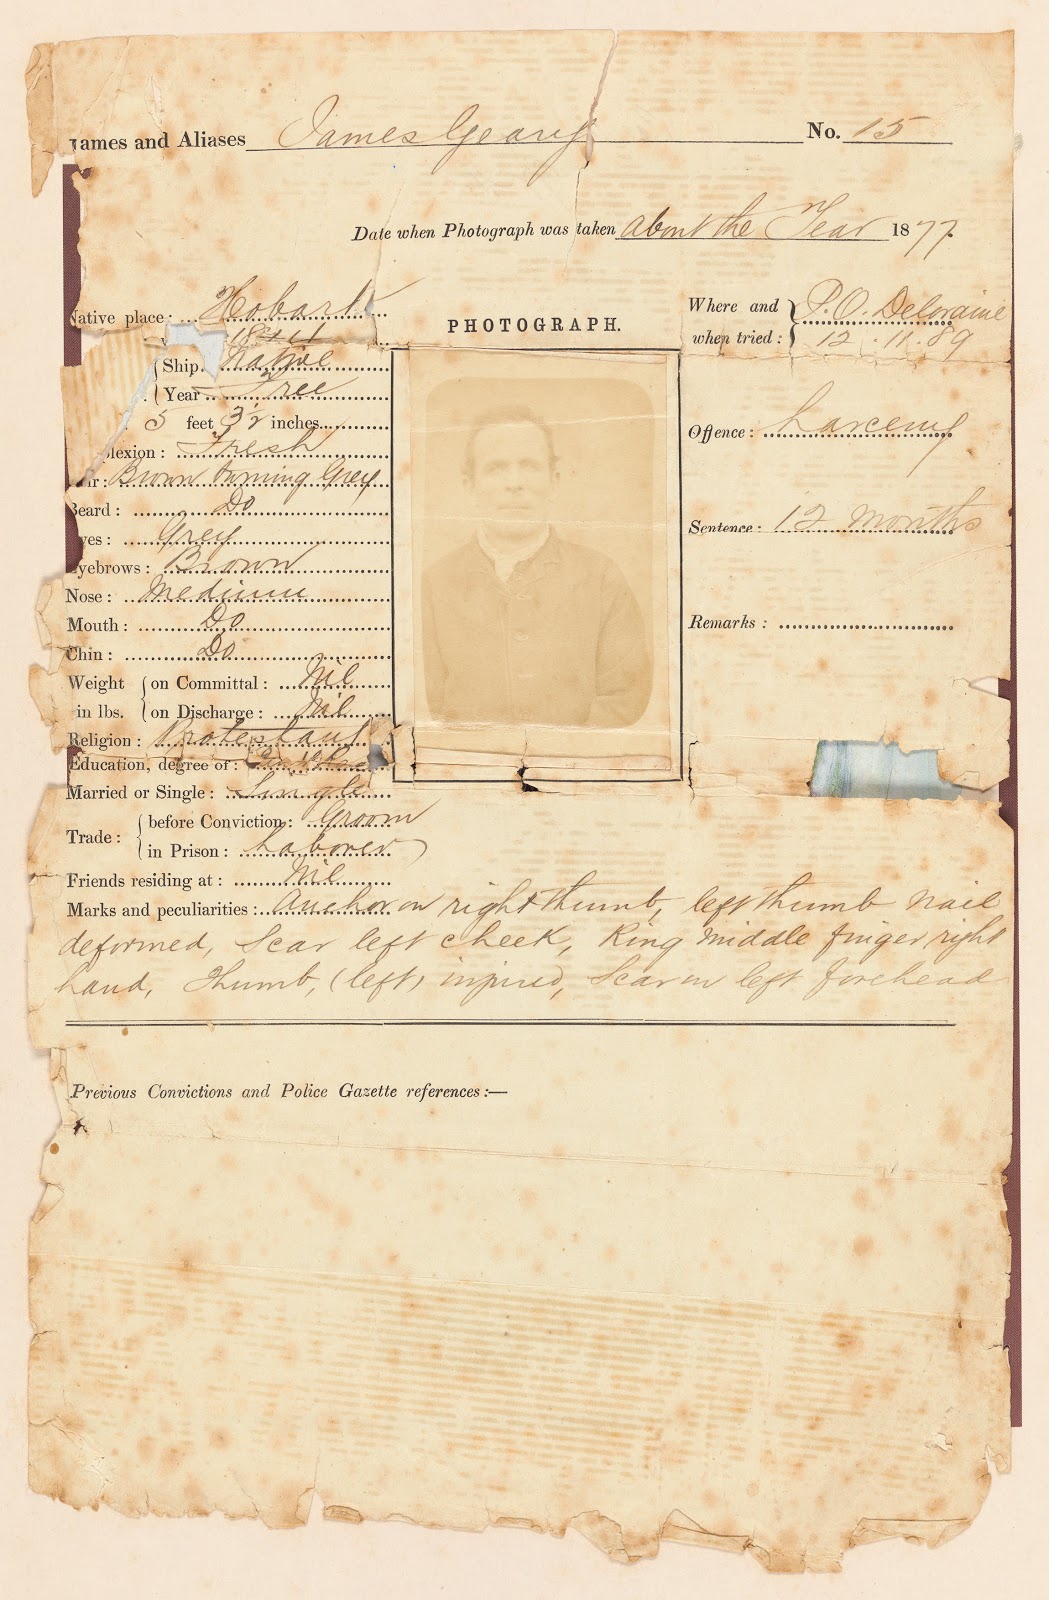 Names and Aliases James Geary No. 15
Date when Photograph was taken about the Year 1877.
Native place: Hobart
1844
Ship. Native
Year Free
5 feet 3½ inches
plexion: Fresh
ir: Brown turning Grey
Beard: Do
yes: Grey
Eyebrows: Brown
Nose: Medium
Mouth: Do
Chin: Do
Weight in lbs. on Committal: Nil
on Discharge: Nil
Religion: Protestant
Education, degree of:
Married or Single: Single
Trade: before Conviction: Groom
in Prison: Laborer
Friends residing at: Nil
PHOTOGRAPH.
Where and when tried: P.O. Deloraine
12.11.89
Offence: Larceny
Sentence: 12 Months
Remarks:
Marks and peculiarities: Anchor on right thumb, left thumb nail
deformed, Scar left cheek, Ring middle finger right
hand, Thumb, (left) injured, Scar on left forehead
Previous Convictions and Police Gazette references:—